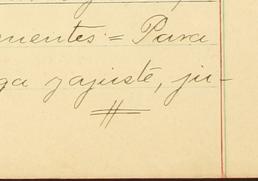 nentes = Para
ga y ajuste, ju-